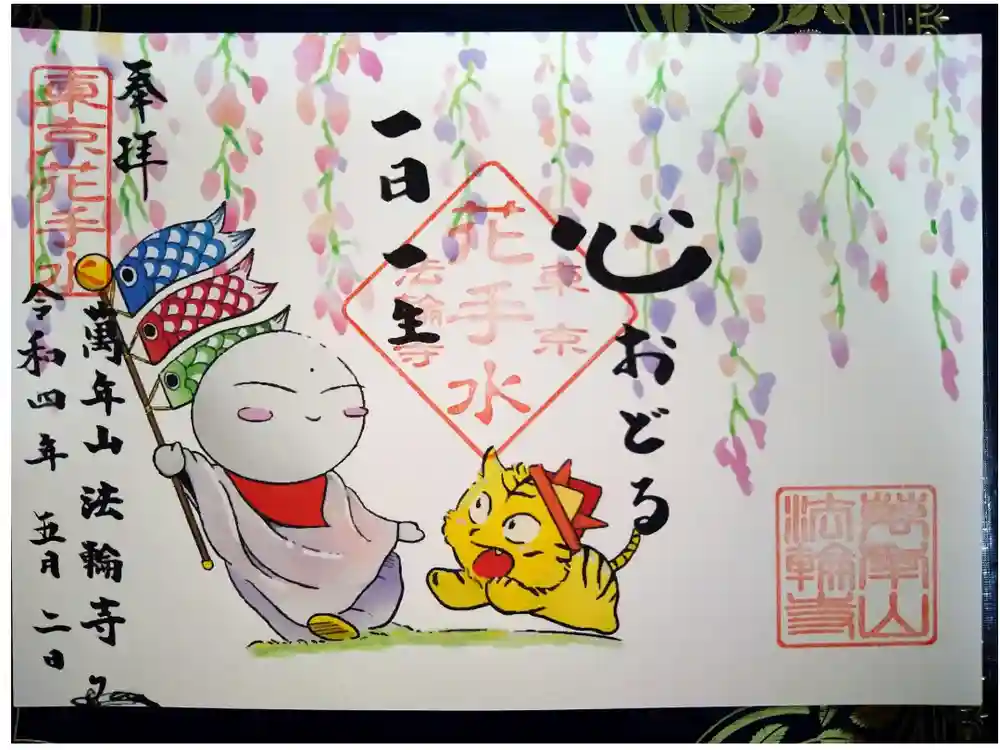 心おどる
一日一生
東京
花手水
法輪寺
奉拝
東京花手水
萬年山法輪寺
令和四年五月二日
萬年山
法輪寺